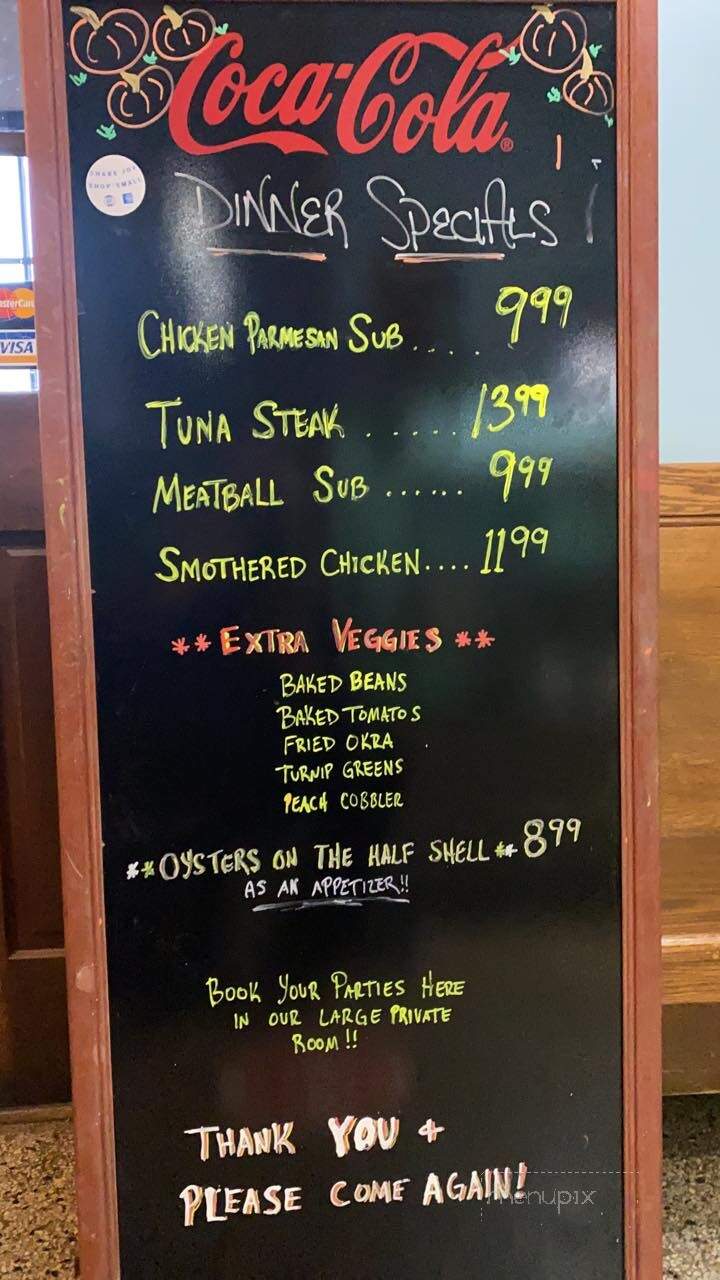 Coca-Cola®
SHARE JOY
SHOP SMALL
DINNER SPECIALS
MasterCard
VISA
CHICKEN PARMESAN SUB..... 9 99
TUNA STEAK ...... 13 99
MEATBALL SUB ...... 9 99
SMOTHERED CHICKEN.... 11 99
** EXTRA VEGGIES **
BAKED BEANS
BAKED TOMATOS
FRIED OKRA
TURNIP GREENS
PEACH COBBLER
**OYSTERS ON THE HALF SHELL** 8 99
AS AN APPETIZER!!
BOOK YOUR PARTIES HERE
IN OUR LARGE PRIVATE
ROOM!!
THANK YOU +
PLEASE COME AGAIN!
menupix